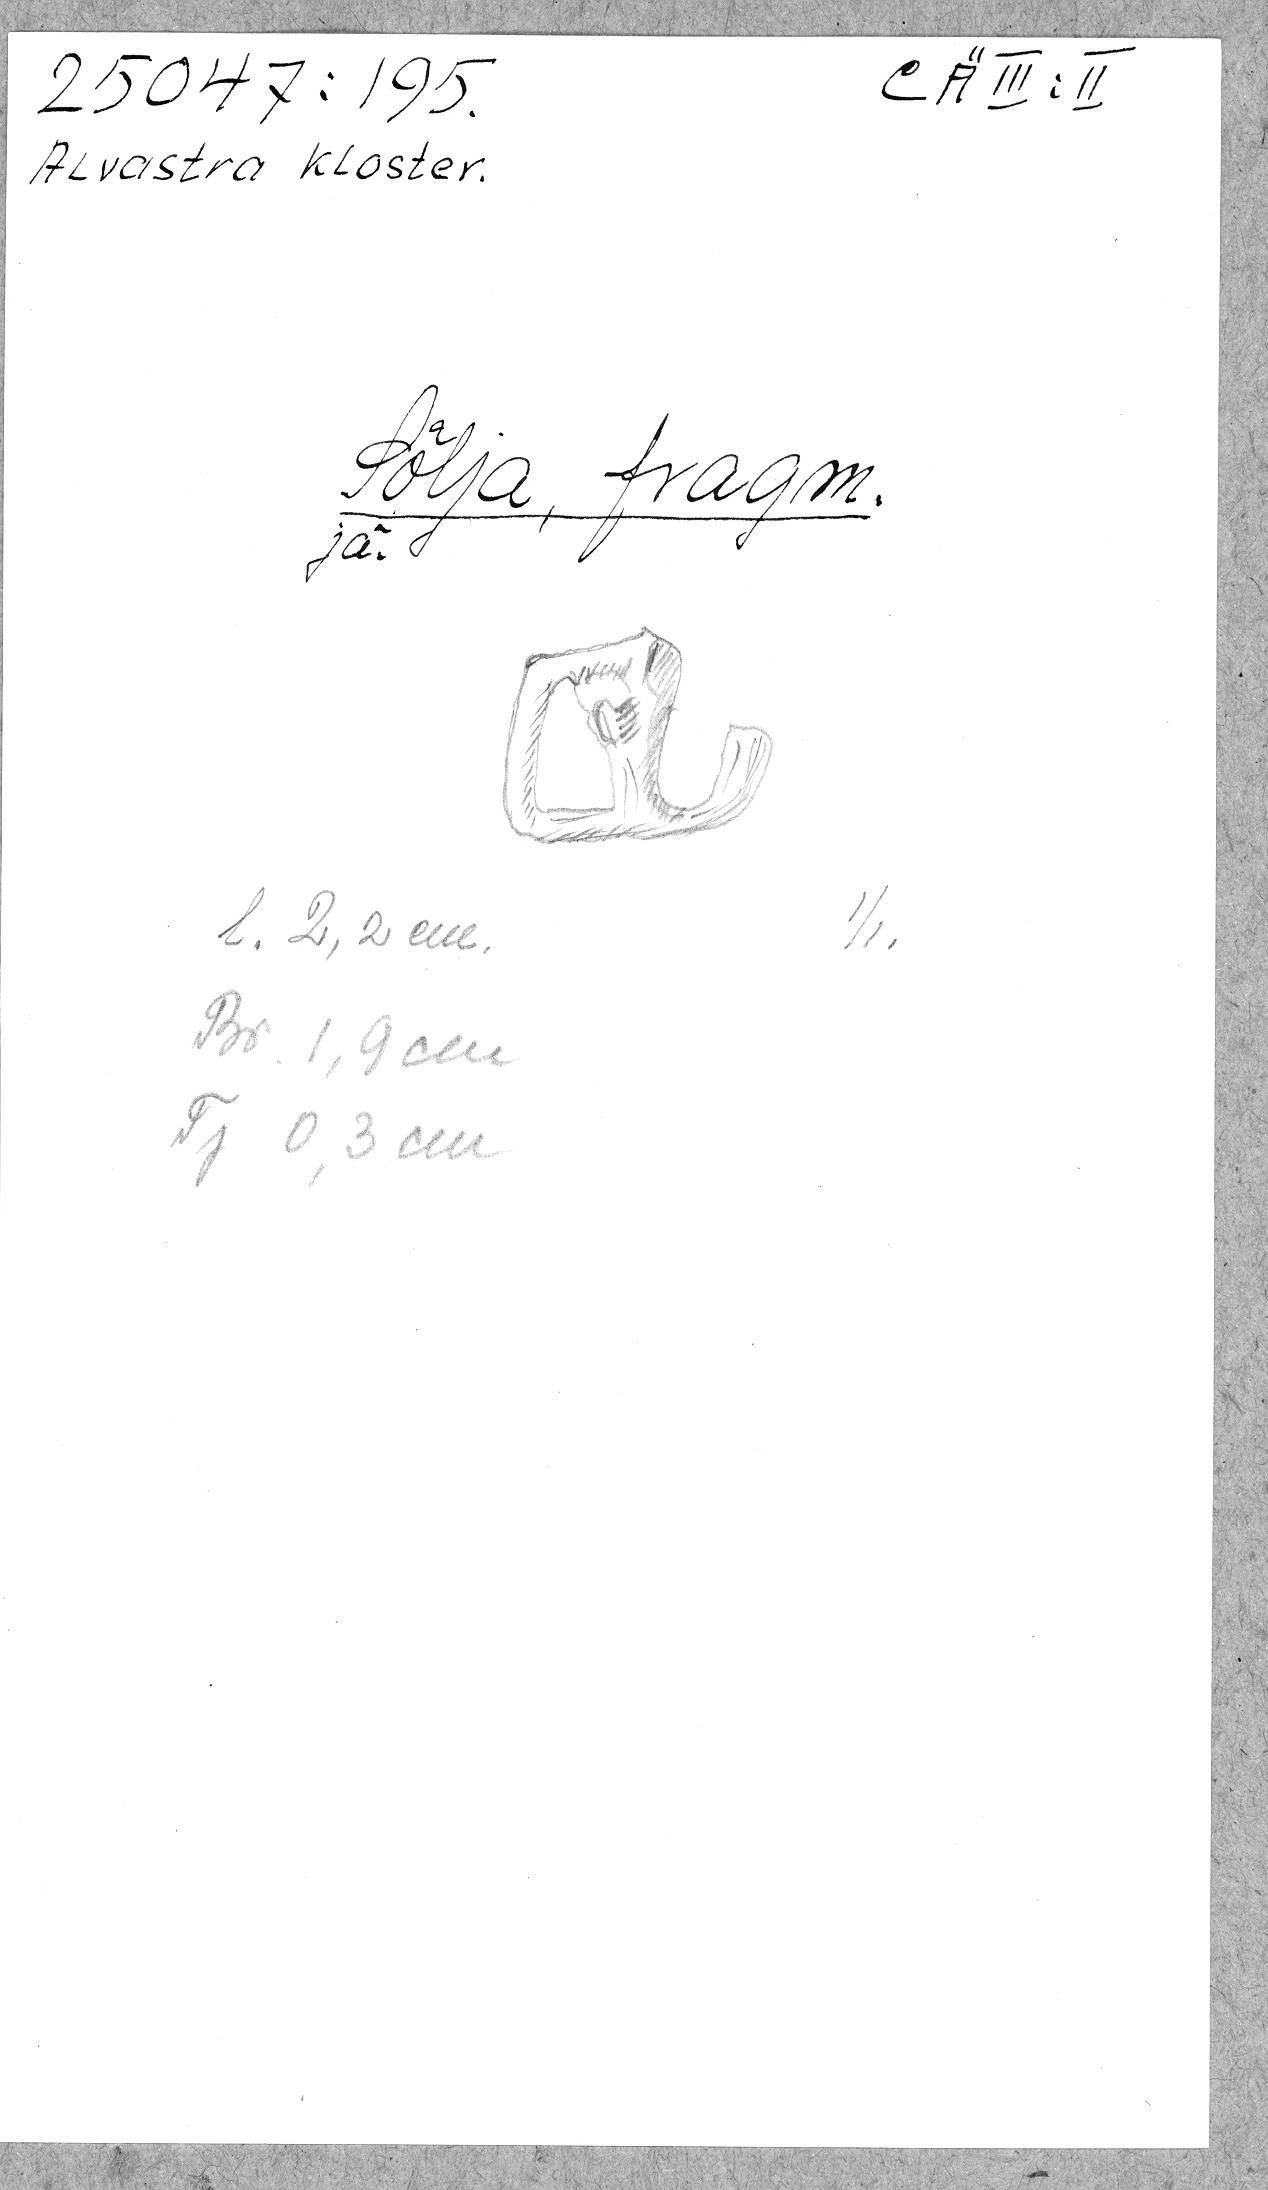 25047:195.
CÄ III:II
Alvastra kloster.
Sölja, fragm.
jä.
l. 2,2 cm.
1/1.
Br. 1,9 cm
Tj 0,3 cm